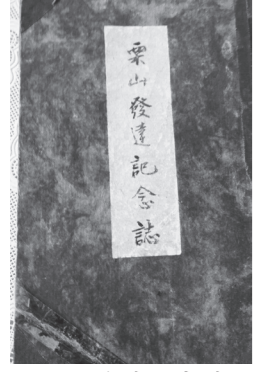 栗山發達記念誌